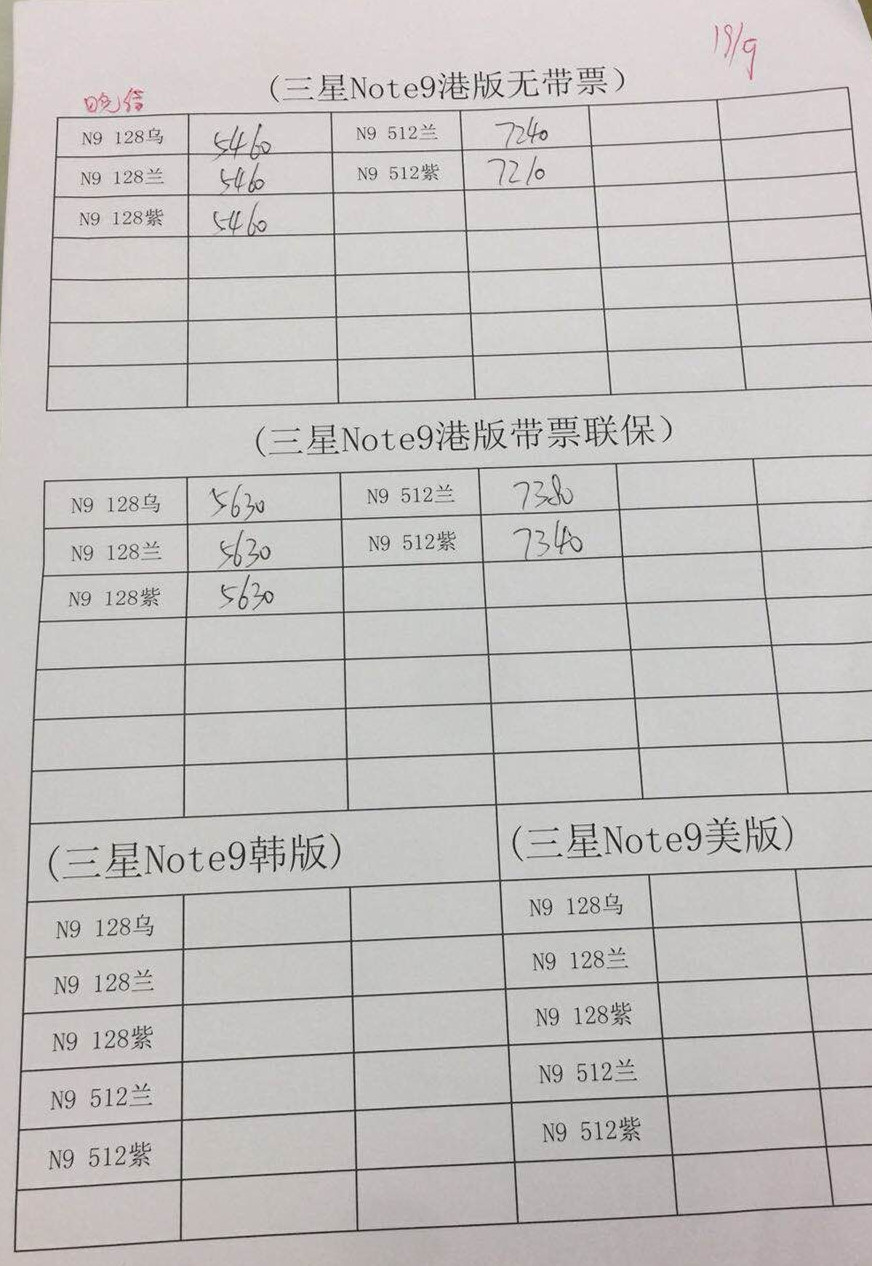 19/9
(三星Note9港版无带票)
N9 128乌 5460 N9 512兰 7240
N9 128兰 5460 N9 512紫 7210
N9 128紫 5460
(三星Note9港版带票联保)
N9 128乌 5630 N9 512兰 7380
N9 128兰 5630 N9 512紫 7340
N9 128紫 5630
(三星Note9韩版) (三星Note9美版)
N9 128乌 N9 128乌
N9 128兰 N9 128兰
N9 128紫 N9 128紫
N9 512兰 N9 512兰
N9 512紫 N9 512紫